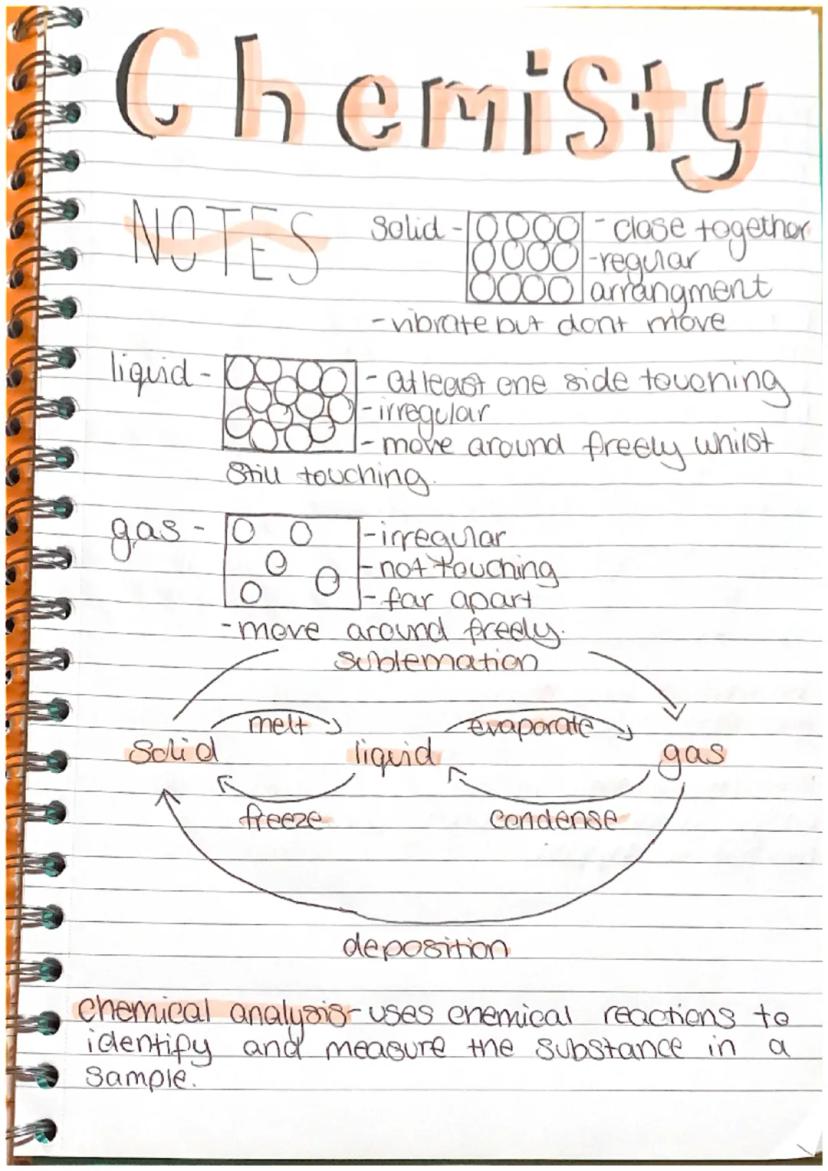 Chemisty
NOTES
solid - - close together
- regular
arrangment
- vibrate but dont move
liquid - - atleast one side touching
- irregular
- move around freely whilst
still touching.
gas - - irregular
- not touching
- far apart
- move around freely.
sublemation
melt evaporate
solid liquid gas
freeze condense
deposition
chemical analysis - uses chemical reactions to
identify and measure the substance in a
sample.